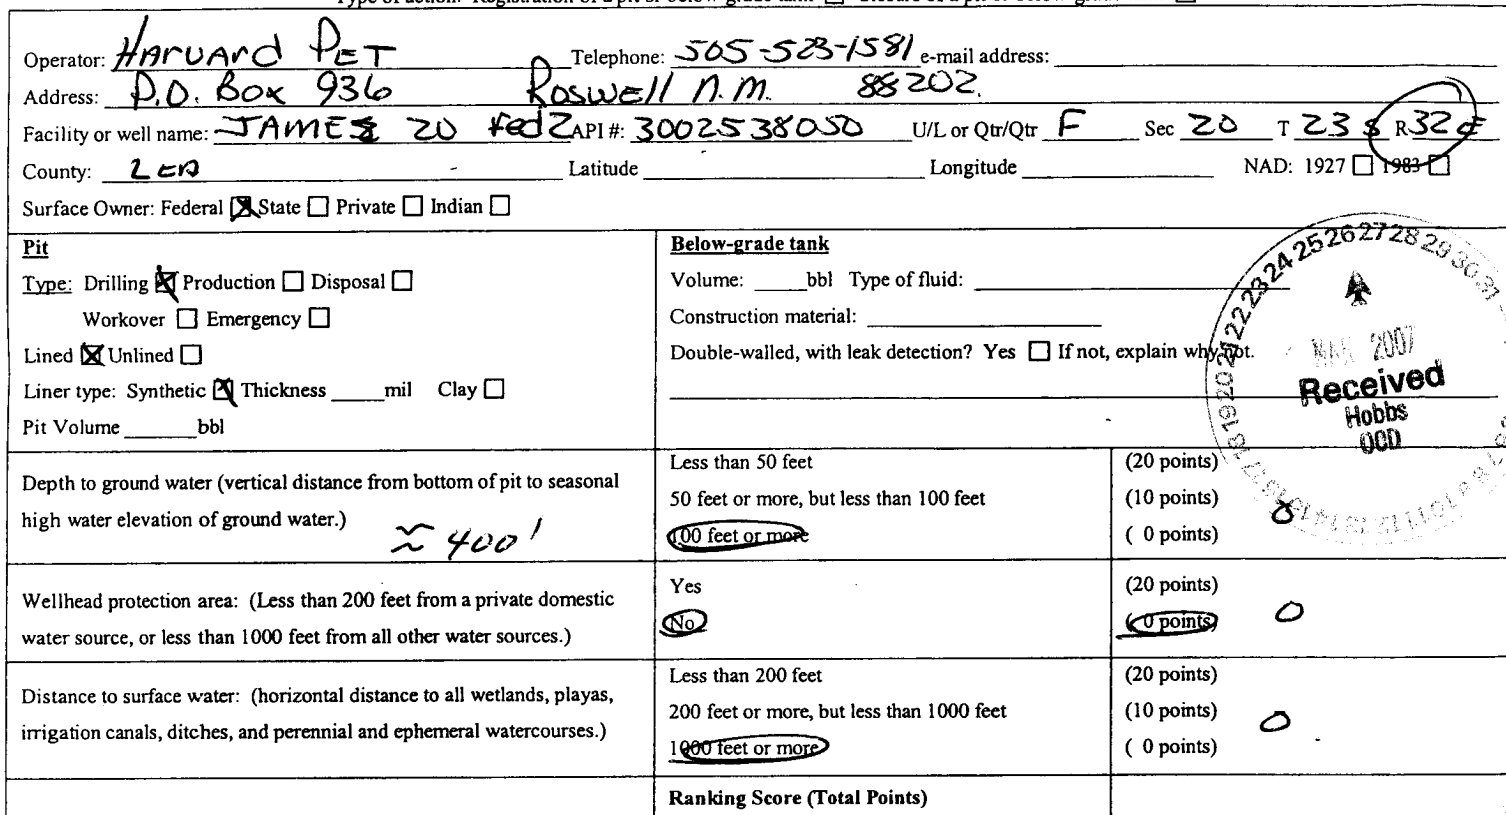 Operator: HARVARD PET Telephone: 505-523-1581 e-mail address:
Address: P.O. Box 936 Roswell N.M. 88202.
Facility or well name: JAMES 20 Fed 2 API #: 3002538050 U/L or Qtr/Qtr F Sec 20 T 23 S R 32 E
County: LEA Latitude Longitude NAD: 1927 ☐ 1983 ☐
Surface Owner: Federal ☒ State ☐ Private ☐ Indian ☐
Pit
Type: Drilling ☒ Production ☐ Disposal ☐
Workover ☐ Emergency ☐
Lined ☒ Unlined ☐
Liner type: Synthetic ☒ Thickness _____mil Clay ☐
Pit Volume ______bbl
Below-grade tank
Volume: _____bbl Type of fluid:
Construction material:
Double-walled, with leak detection? Yes ☐ If not, explain why not.
2007
Received
Hobbs
OCD
Depth to ground water (vertical distance from bottom of pit to seasonal
high water elevation of ground water.)
≈ 400'
Less than 50 feet (20 points)
50 feet or more, but less than 100 feet (10 points)
100 feet or more ( 0 points) 0
Wellhead protection area: (Less than 200 feet from a private domestic
water source, or less than 1000 feet from all other water sources.)
Yes (20 points)
No ( 0 points) 0
Distance to surface water: (horizontal distance to all wetlands, playas,
irrigation canals, ditches, and perennial and ephemeral watercourses.)
Less than 200 feet (20 points)
200 feet or more, but less than 1000 feet (10 points) 0
1000 feet or more ( 0 points)
Ranking Score (Total Points)